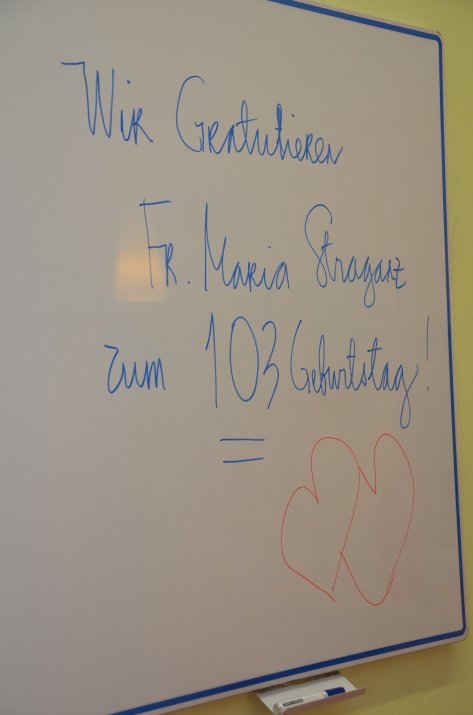 Wir Gratulieren
Fr. Maria Straganz
zum 103 Geburtstag!